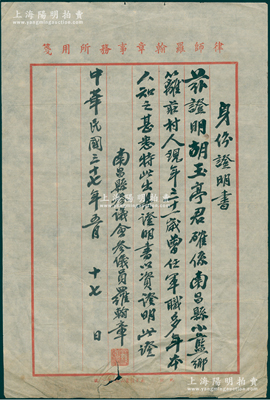 上海陽明拍賣
www.shymauction.com
律師羅翰章事務所用箋
身份證明書
茲證明胡玉亭君確係南昌縣小藍鄉
籬莊村人現年三十一歲曾任軍職多年本
人知之甚悉特此出具證明書以資證明此證
南昌縣參議會參議員羅翰章
中華民國三十七年五月十七日
上海陽明拍賣